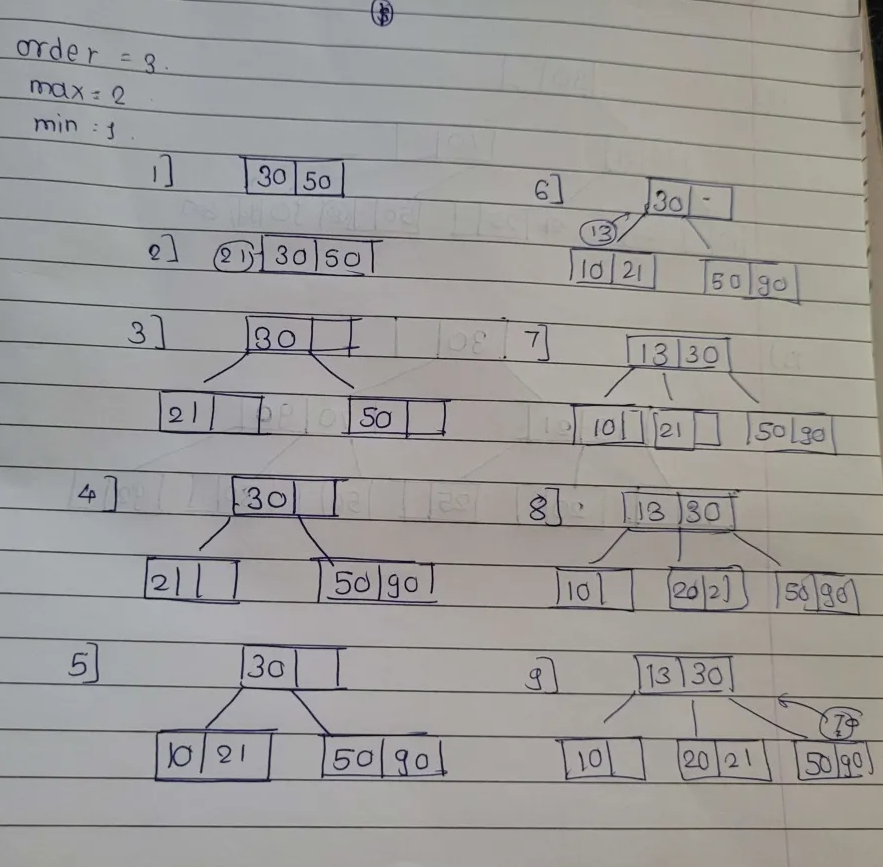 order = 3.
max = 2
min : 1.
1] 30 50
2] 21 30 50
3] 30
21 50
4] 30
21 50 90
5] 30
10 21 50 90
6] 30 -
13
10 21 50 90
7] 13 30
10 21 50 90
8] 13 30
10 20 21 50 90
9] 13 30
10 20 21 50 90